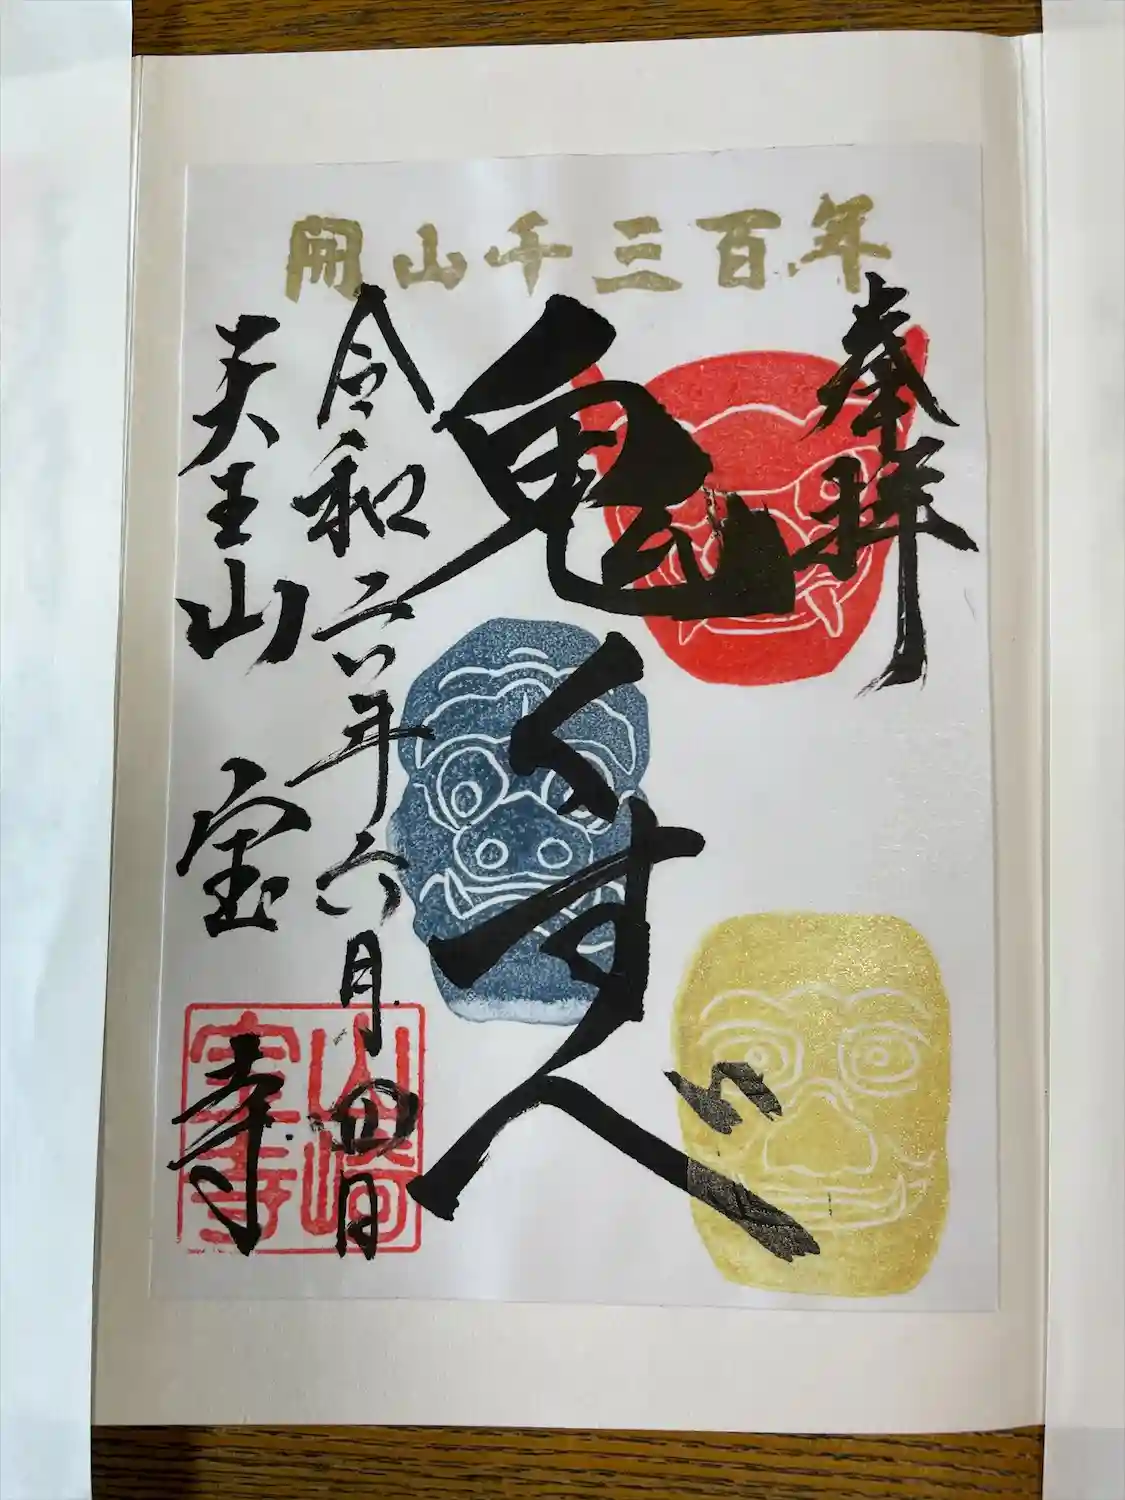 開山千三百年
奉拝
鬼くすべ
令和六年六月四日
天王山 宝寺
山崎
宝寺